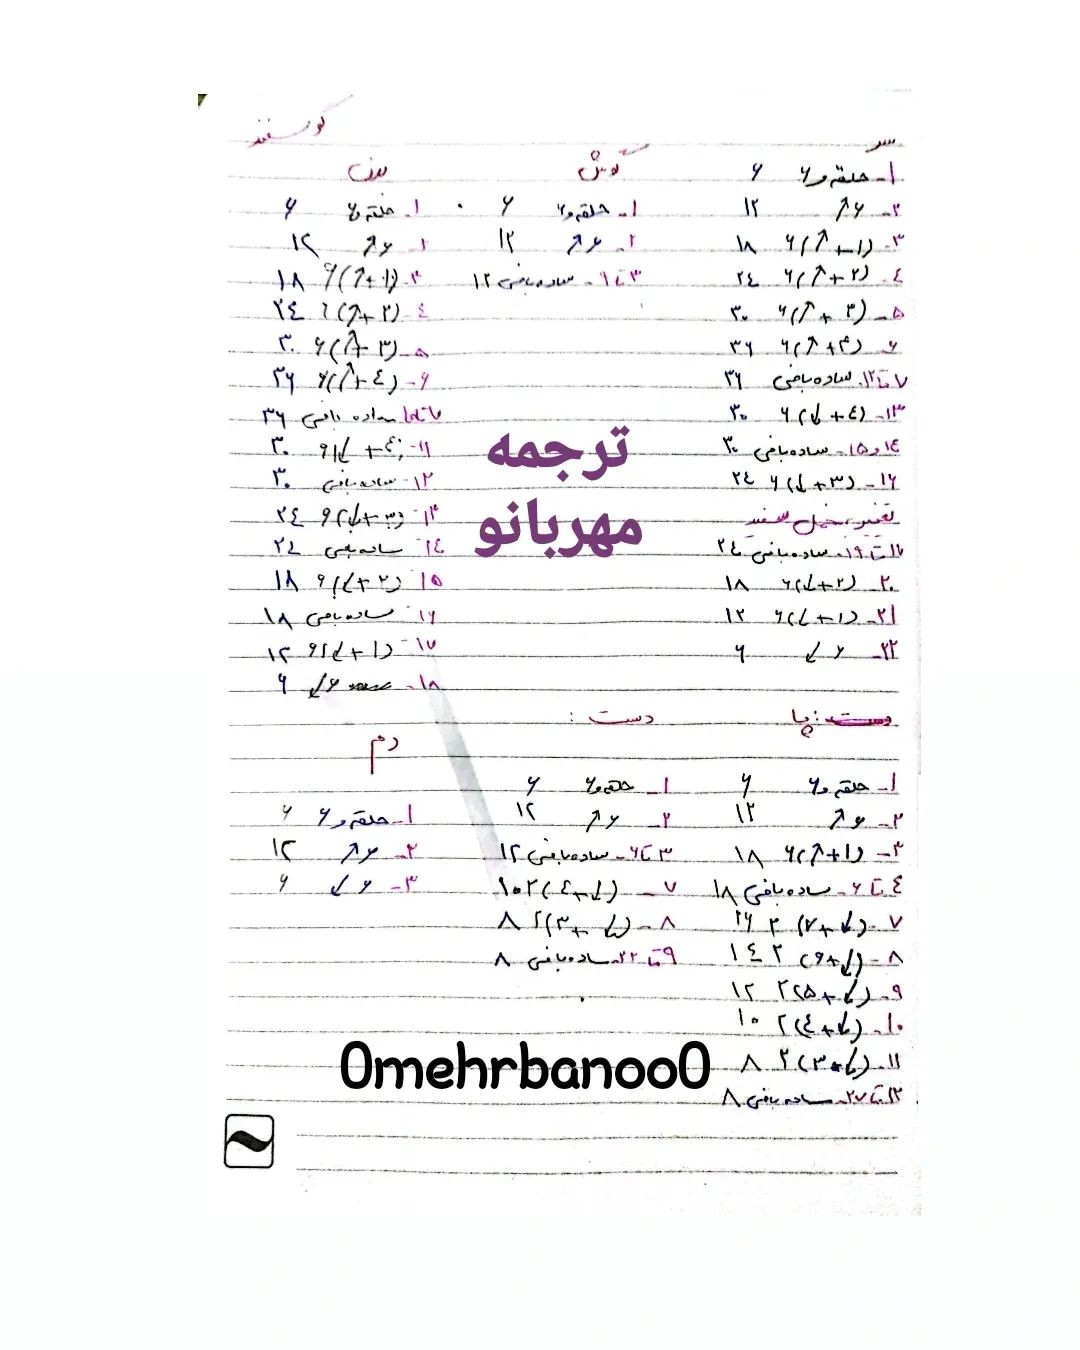 گوسفند
سر
۱- حلقه و ۶ ۶
۲- ۶↗ ۱۲
۳- (۱+↗)۶ ۱۸
٤- (۲+↗)۶ ۲٤
۵- (۳+↗)۶ ۳۰
۶- (۴+↗)۶ ۳۶
۷ تا ۱۲- ساده بافی ۳۶
۱۳- (٤+↙)۶ ۳۰
۱٤ و ۱۵- ساده بافی ۳۰
۱۶- (۳+↙)۶ ۲٤
تغییر سفید
تا ۱۹- ساده بافی ۲٤
۲۰- (۲+↙)۶ ۱۸
۲۱- (۱+↙)۶ ۱۲
۲۲- ۶↙ ۶
گوش
۱- حلقه و ۶ ۶
۲- ۶↗ ۱۲
۳ تا ۹- ساده بافی ۱۲
بدن
۱- حلقه و ۶ ۶
۲- ۶↗ ۱۲
۳- (۱+↗)۶ ۱۸
٤- (۲+↗)۶ ۲٤
۵- (۳+↗)۶ ۳۰
۶- (٤+↗)۶ ۳۶
ساده بافی ۳۶
۱۱- (٤+↙)۶ ۳۰
۱۲- ساده بافی ۳۰
۱۳- (۳+↙)۶ ۲٤
۱٤- ساده بافی ۲٤
۱۵- (۲+↙)۶ ۱۸
۱۶- ساده بافی ۱۸
۱۷- (۱+↙)۶ ۱۲
۱۸- ۶↙ ۶
ترجمه
مهربانو
پا:
۱- حلقه و ۶ ۶
۲- ۶↗ ۱۲
۳- (۱+↗)۶ ۱۸
٤ تا ۶- ساده بافی ۱۸
۷- (↙+۷) ۲ ۱۶
۸- (↙+۶) ۲ ۱٤
۹- (↙+۵)۲ ۱۲
۱۰- (↙+٤)۲ ۱۰
۱۱- (↙+۳)۲ ۸
۱۲ تا ۲۷- ساده بافی ۸
دست:
۱- حلقه و ۶ ۶
۲- ۶↗ ۱۲
۳ تا ۶- ساده بافی ۱۲
۷- (↙+٤)۲ ۱۰
۸- (↙+۳)۲ ۸
۹ تا ۲۲- ساده بافی ۸
دم
۱- حلقه و ۶ ۶
۲- ۶↗ ۱۲
۳- ۶↙ ۶
0mehrbanoo0